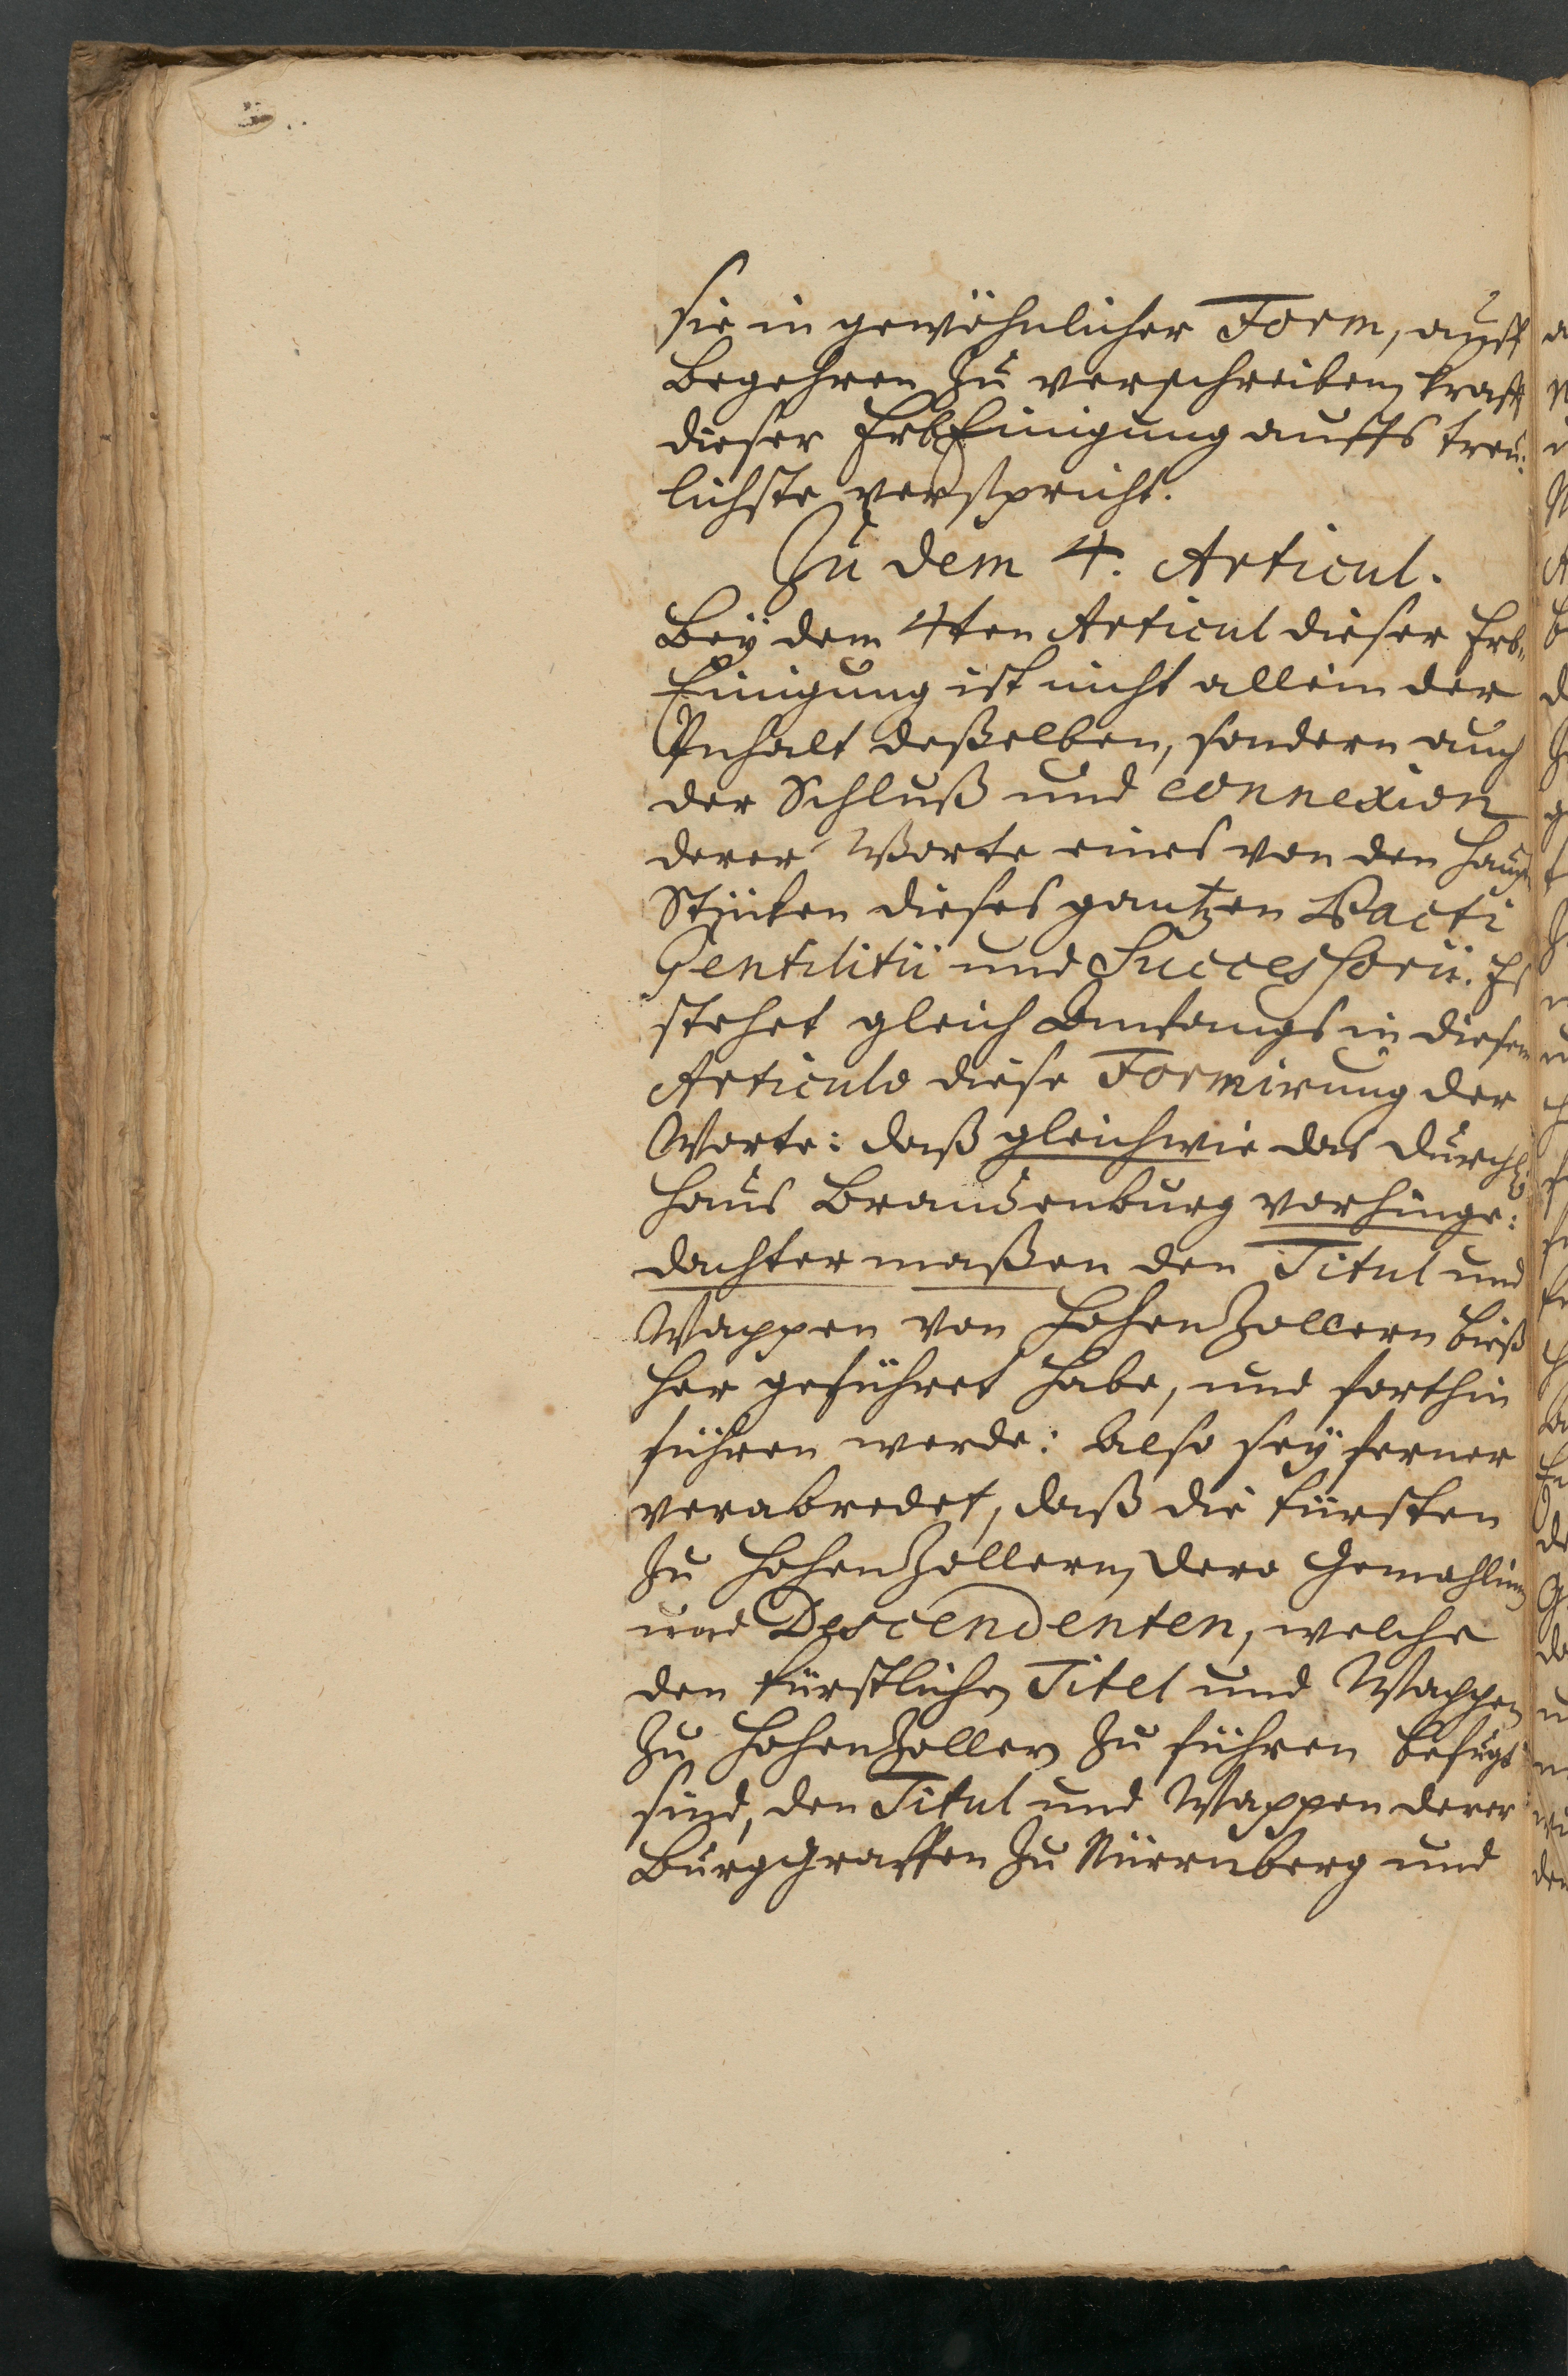 sie in gewöhnlicher Form, auff
Begehren zu verschreiben, krafft
dieser ErbEinigung auffs treu:
lichste verspricht.
Zu dem 4. Articul.
Bey dem 4ten Articul dieser Erb-
Einigung ist nicht allein der
Inhalt deßelben, sondern auch
der Schluß und connexion
derer Worte eines von den Haupt
Stücken dieses gantzen Pacti
Gentilitii und Successorii. Es
stehet gleich Anfangs in diesem
Articulo diese Formirung der
Worte: daß gleichwie das Durchl.
Haus Brandenburg vorhinge:
dachter maßen den Titul und
Wappen von HohenZollern biß
her geführet habe, und forthin
führen werde: Also sey ferner
verabredet, daß die Fürsten
zu HohenZollern, dero Gemahlinen
und Descendenten, welche
den Fürstlichen Titel und Wappen
zu HohenZollern zu führen befugt
sind, den Titul und Wappen derer
Burggraffen zu Nürrnberg und